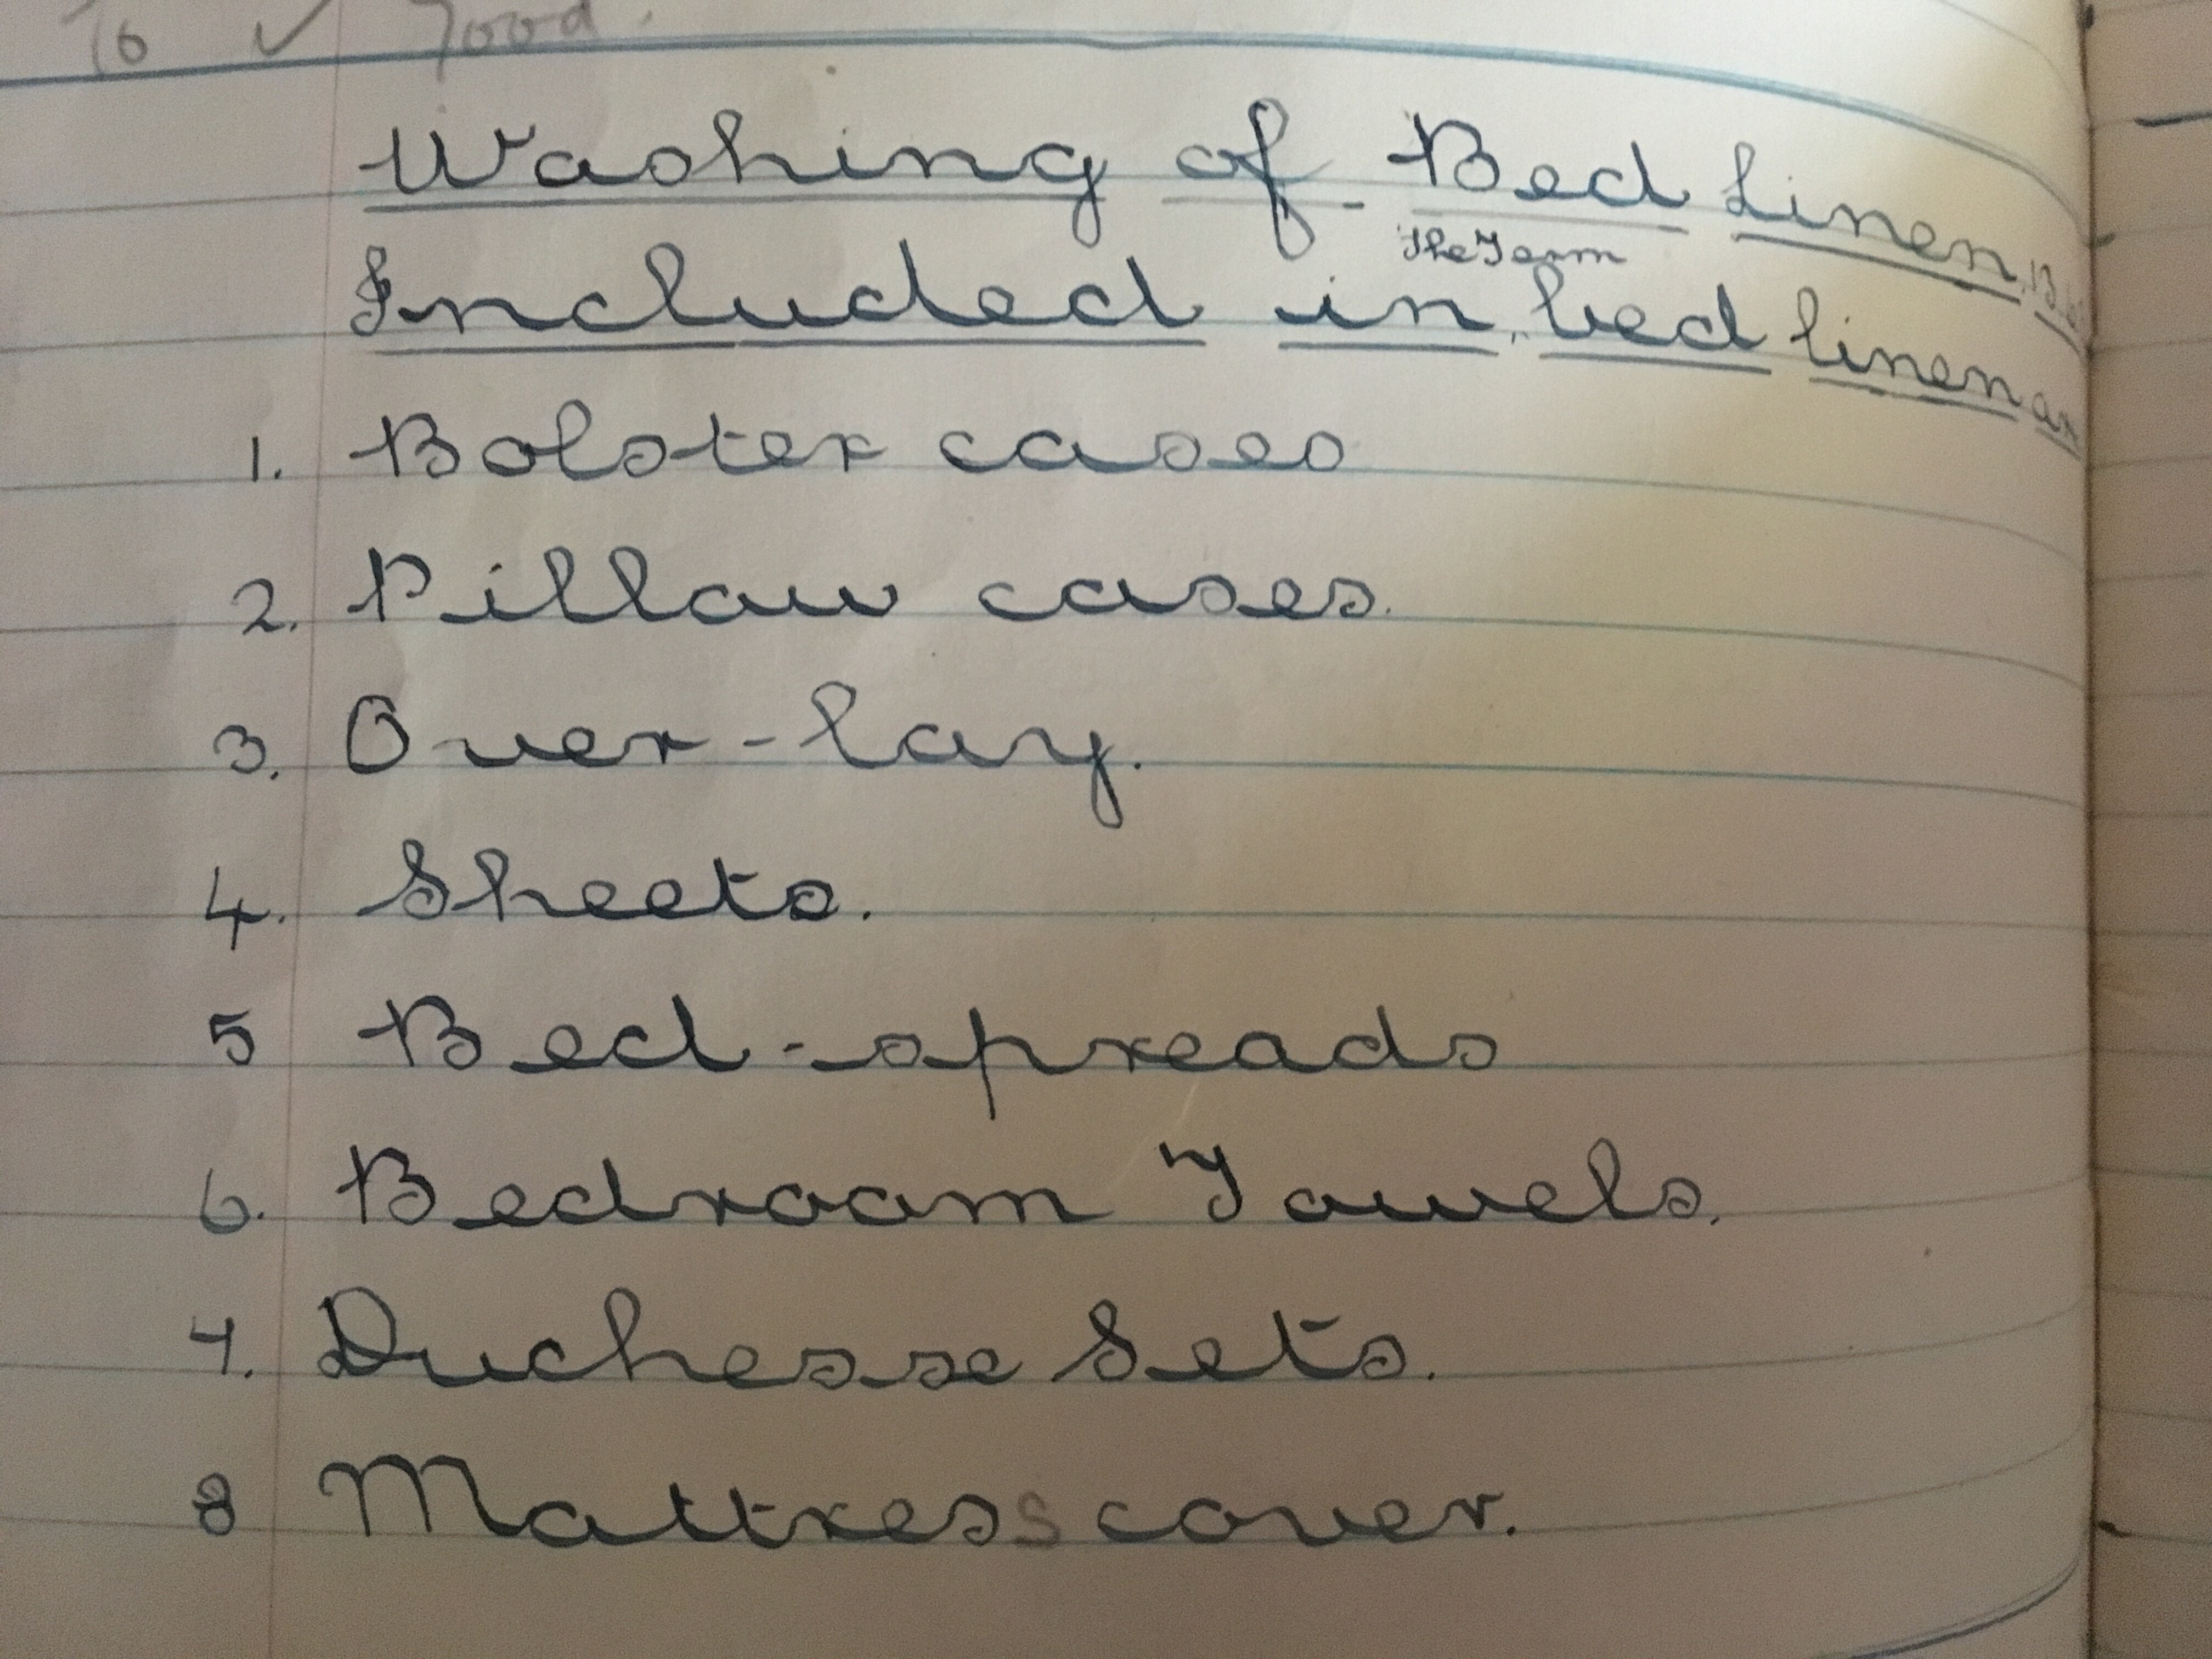 Good.
Washing of Bed Linen.
The Term
Included in, bed linen are
1. Bolster cases
2. Pillow cases.
3. Over-lay.
4. Sheets.
5 Bed-spreads
6. Bedroom Towels.
7. Duchesse Sets.
8 Mattress cover.